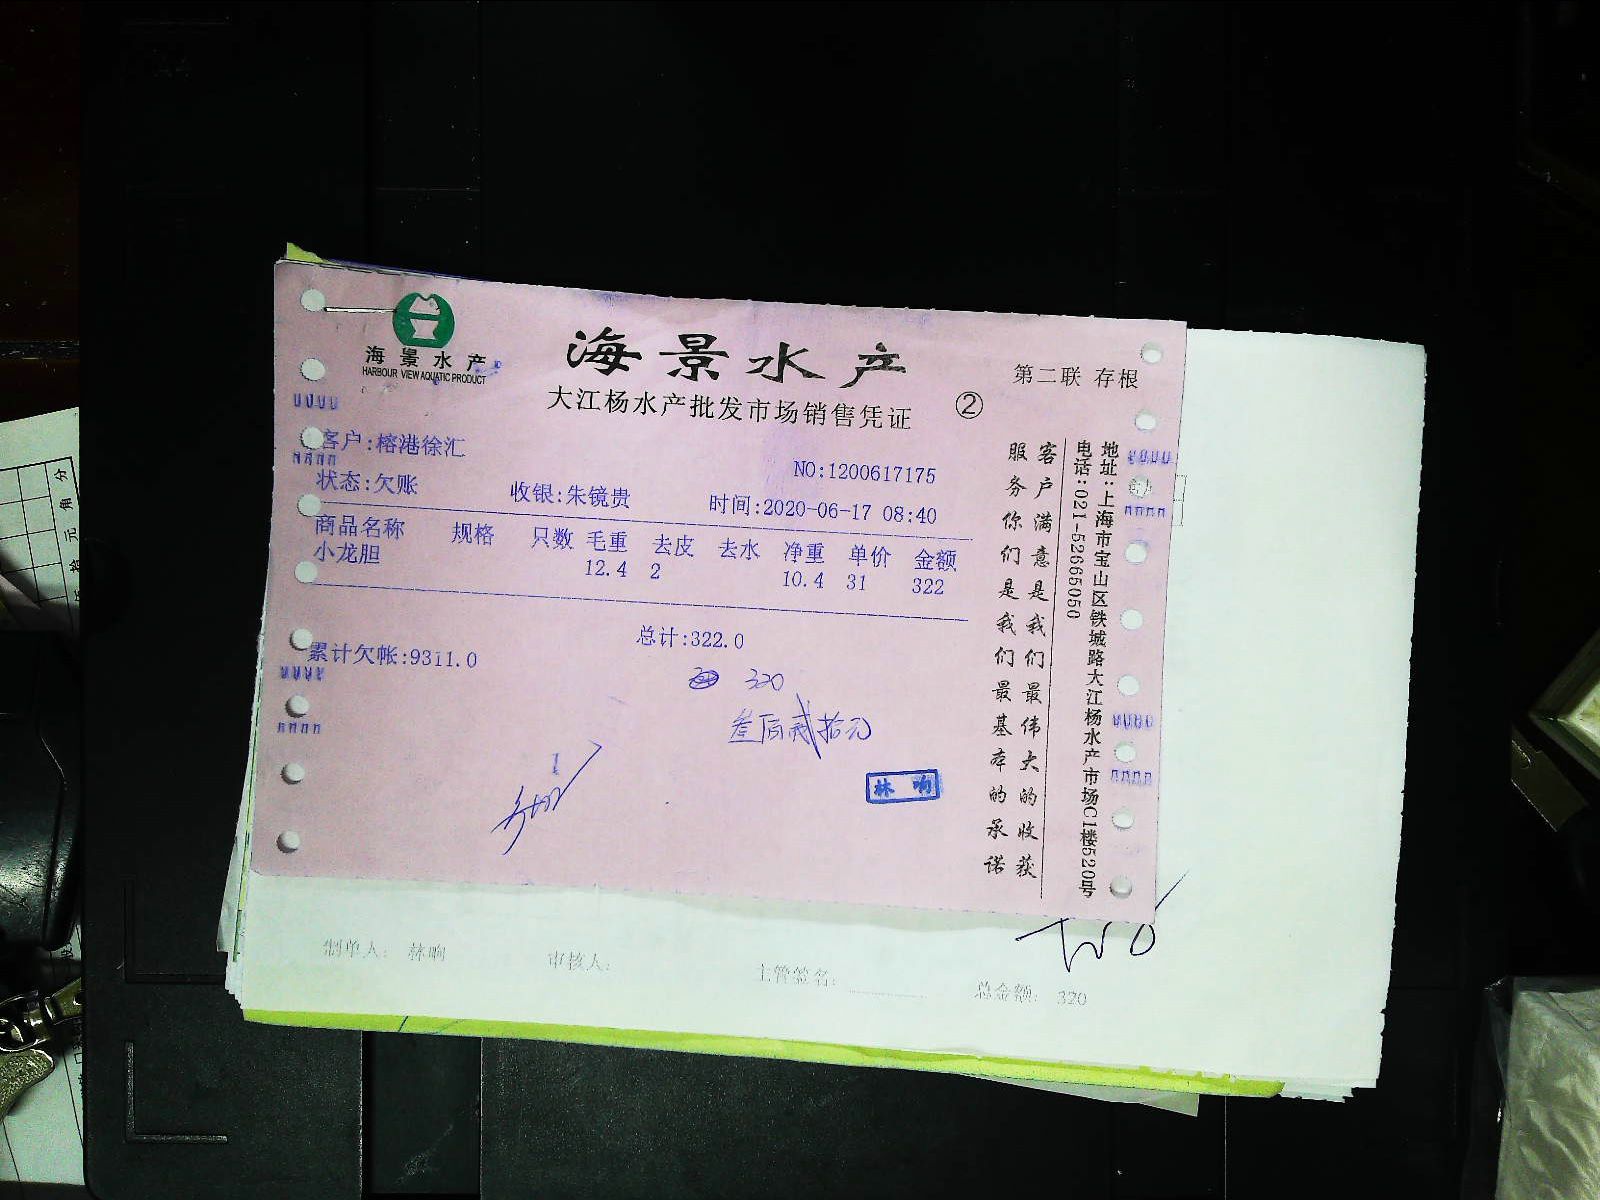 海景水产
HARBOUR VIEW AQUATIC PRODUCT
海景水产
大江杨水产批发市场销售凭证
②
第二联 存根
客户:榕港徐汇
NO:1200617175
状态:欠账 收银:朱镜贵 时间:2020-06-17 08:40
商品名称 规格 只数 毛重 去皮 去水 净重 单价 金额
小龙胆 12.4 2 10.4 31 322
总计:322.0
累计欠帐:9311.0
320
叁佰贰拾元
林响
客户满意是我们最伟大的收获
服务你们是我们最基本的承诺
地址:上海市宝山区铁城路大江杨水产市场C1楼520号
电话:021-52665050
制单人: 林响 审核人: 主管签名: 总金额: 320
分
角
元